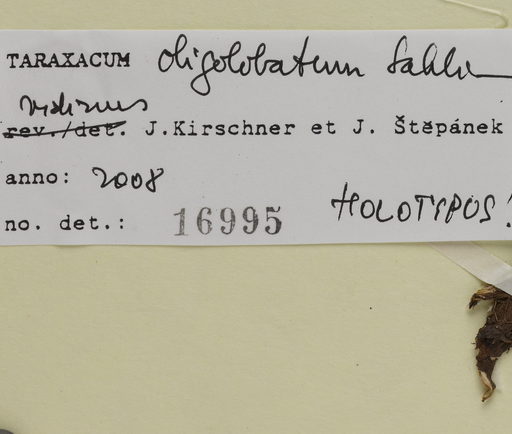 TARAXACUM oligolobatum Dahlst
vidimus
rev./det. J.Kirschner et J. Štěpánek
anno: 2008
HOLOTYPUS!
no. det.: 16995